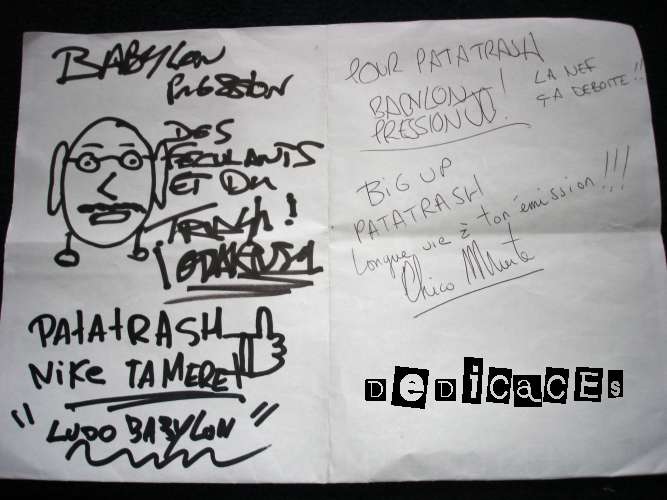 BABYLON
PRESSION
DES
FECULANTS
ET DU
TRASH!
PATATRASH
NIKE TA MERE!
"LUDO BABYLON"
POUR PATATRASH
BABYLON
PRESSION !
LA NEF
ÇA DEBOITE !!
BIG UP
PATATRASH
Longue vie à ton émission !!!
Chico
DeDicaCEs